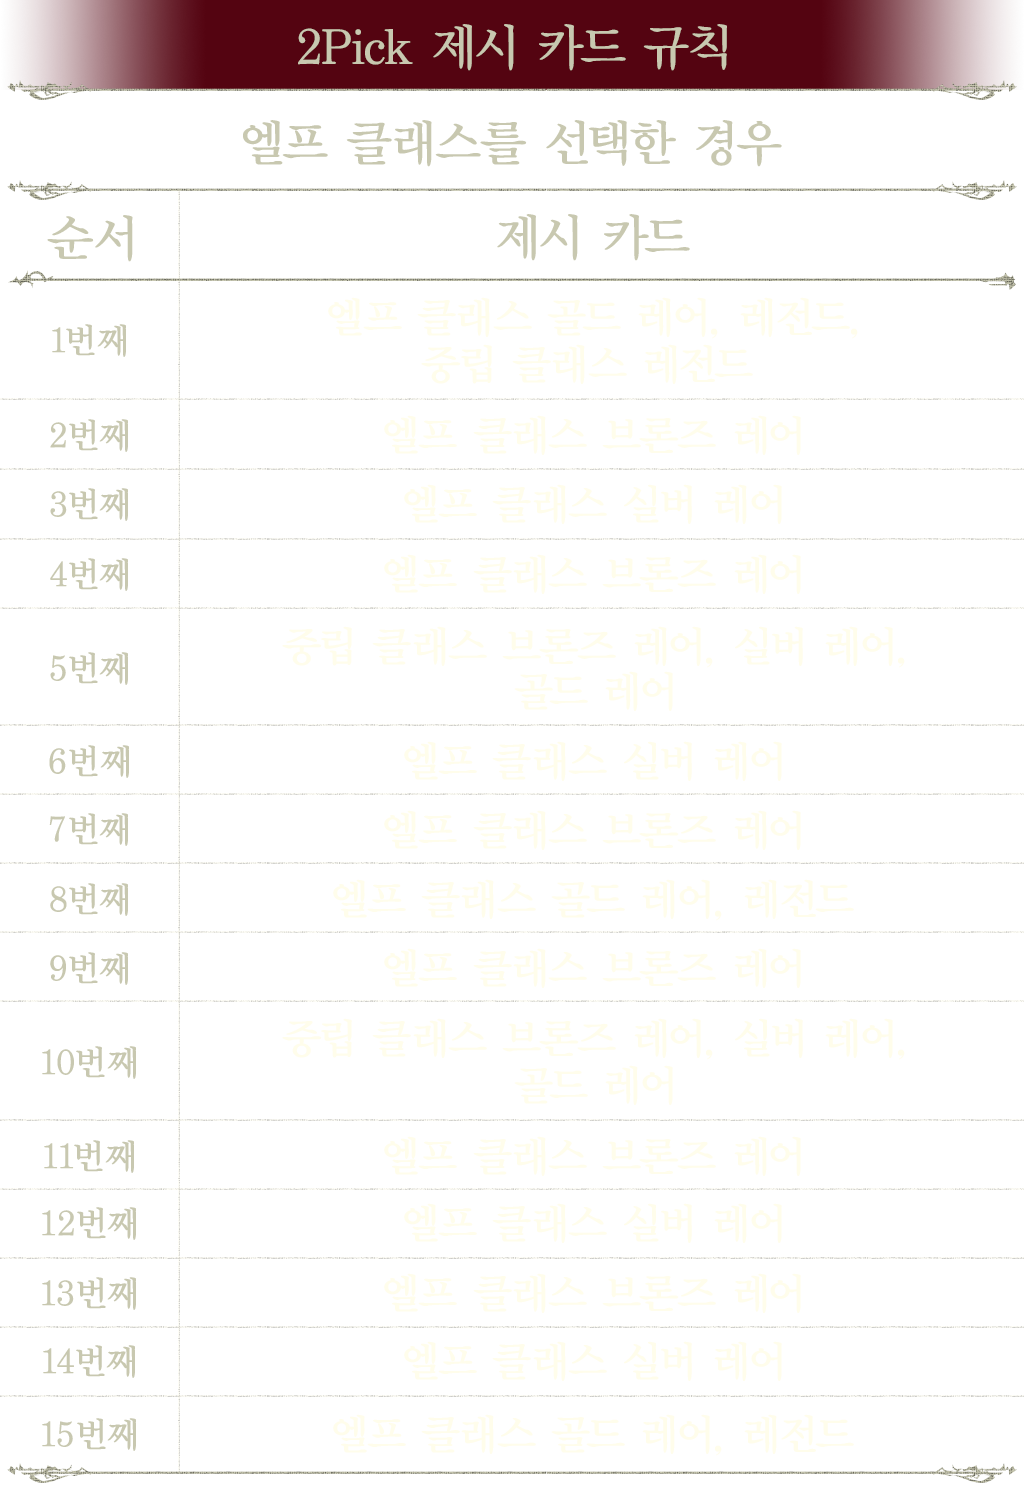 2Pick 제시 카드 규칙
엘프 클래스를 선택한 경우
순서 제시 카드
1번째 엘프 클래스 골드 레어, 레전드,
중립 클래스 레전드
2번째 엘프 클래스 브론즈 레어
3번째 엘프 클래스 실버 레어
4번째 엘프 클래스 브론즈 레어
5번째 중립 클래스 브론즈 레어, 실버 레어,
골드 레어
6번째 엘프 클래스 실버 레어
7번째 엘프 클래스 브론즈 레어
8번째 엘프 클래스 골드 레어, 레전드
9번째 엘프 클래스 브론즈 레어
10번째 중립 클래스 브론즈 레어, 실버 레어,
골드 레어
11번째 엘프 클래스 브론즈 레어
12번째 엘프 클래스 실버 레어
13번째 엘프 클래스 브론즈 레어
14번째 엘프 클래스 실버 레어
15번째 엘프 클래스 골드 레어, 레전드